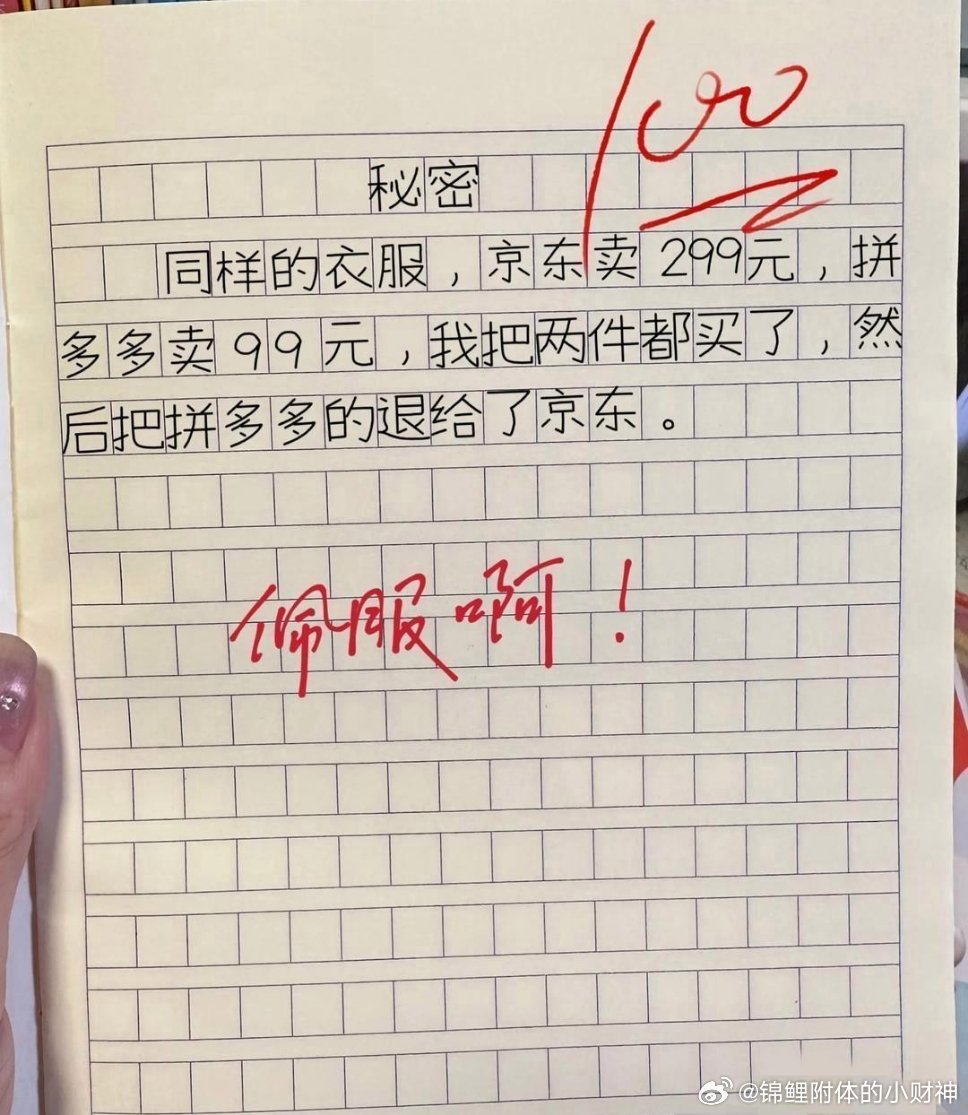 100
秘密
同样的衣服，京东卖299元，拼
多多卖99元，我把两件都买了，然
后把拼多多的退给了京东。
佩服啊！
@锦鲤附体的小财神